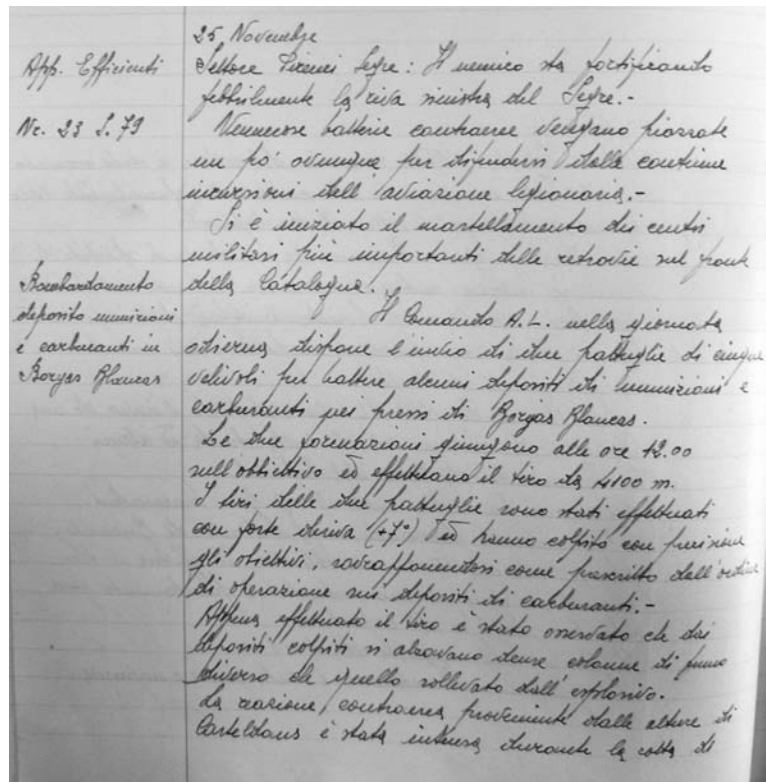 25 Novembre
App. Efficienti
Settore Pirenei Segre: Il nemico sta fortificando
febbrilmente la riva sinistra del Segre.-
Nr. 23 S. 79
Numerose batterie contraeree vengano piazzate
un po' ovunque per difendersi dalle continue
incursioni dell'aviazione legionaria.-
Si è iniziato il martellamento dei centri
militari più importanti delle retrovie sul fronte
della Catalogna.
Bombardamento
deposito munizioni
e carburanti in
Borgas Blancas
Il Comando A.L. nella giornata
odierna dispone l'invio di due pattuglie di cinque
velivoli per battere alcuni depositi di munizioni e
carburanti nei pressi di Borgas Blancas.
Le due formazioni giungono alle ore 12.00
sull'obbiettivo ed effettuano il tiro da 4100 m.
I tiri delle due pattuglie sono stati effettuati
con forte deriva (+7°) ed hanno colpito con precisione
gli obiettivi, sovrapponendosi come prescritto dell'ordine
di operazione sui depositi di carburanti.-
Appena effettuato il tiro è stato osservato che dai
depositi colpiti si alzavano dense colonne di fumo
diverso da quello sollevato dall'esplosivo.
La reazione contraerea proveniente dalle alture di
Casteldans è stata intensa durante la rotta di